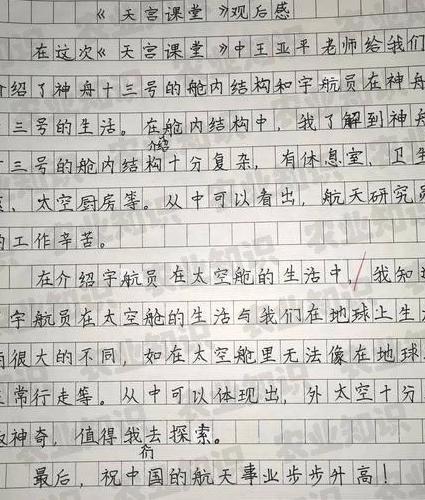 《天宫课堂》观后感
在这次《天宫课堂》中王亚平老师给我们
介绍了神舟十三号的舱内结构和宇航员在神舟
三号的生活。在舱内结构中，我了解到神舟
十三号的舱内结构十分复杂，有休息室、卫生
、太空厨房等。从中可以看出，航天研究员
的工作辛苦。
在介绍宇航员在太空舱的生活中，我知道
宇航员在太空舱的生活与我们在地球上生
很大的不同，如在太空舱里无法像在地球
常行走等。从中可以体现出，外太空十分
神奇，值得我去探索。
最后，祝中国的航天事业步步升高！
农业知识